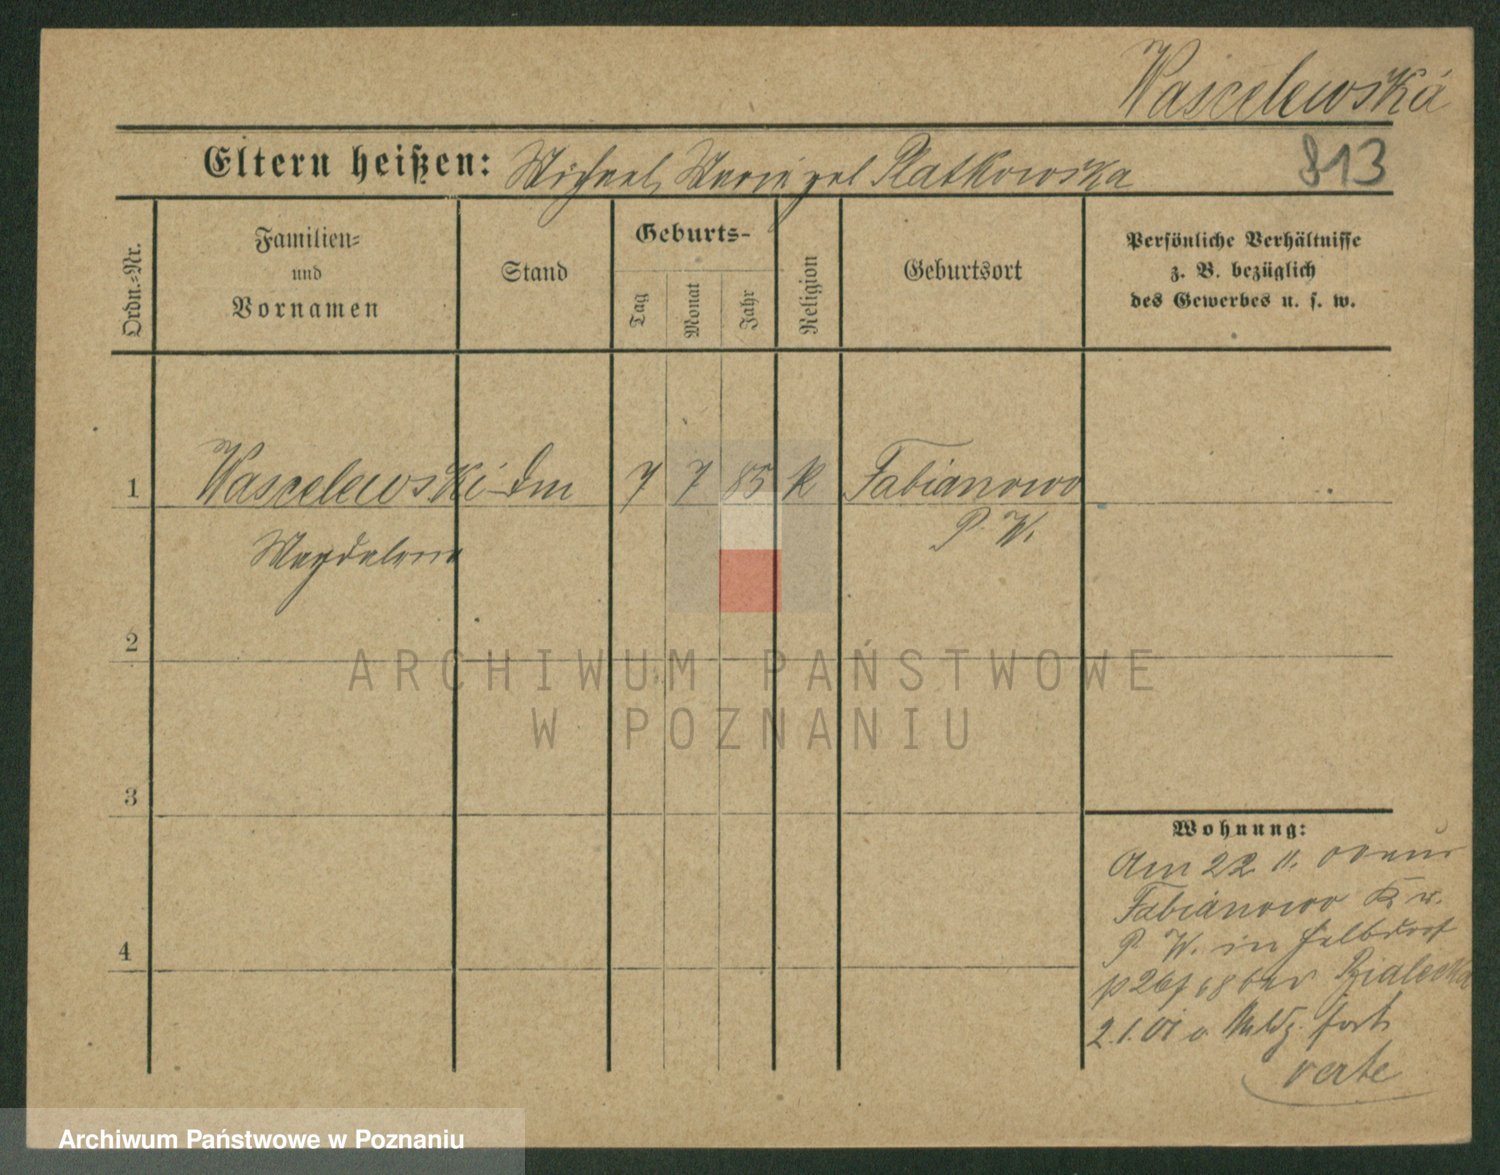 Wascelewska
Eltern heißen: Michael, Marie gel Ratkowska
813
Ordn.=Nr.
Familien=
und
Vornamen
Stand
Geburts-
Tag
Monat
Jahr
Religion
Geburtsort
Persönliche Verhältnisse
z. B. bezüglich
des Gewerbes u. s. w.
1 Wascelewski Dm 7 7 85 K Fabianowo
Magdalena P. W.
2
3
4
Wohnung:
Am 22 11.
Fabianowo
P. W. in
Bialecka
2.1.01 v. fort
verte
ARCHIWUM PAŃSTWOWE
W POZNANIU
Archiwum Państwowe w Poznaniu